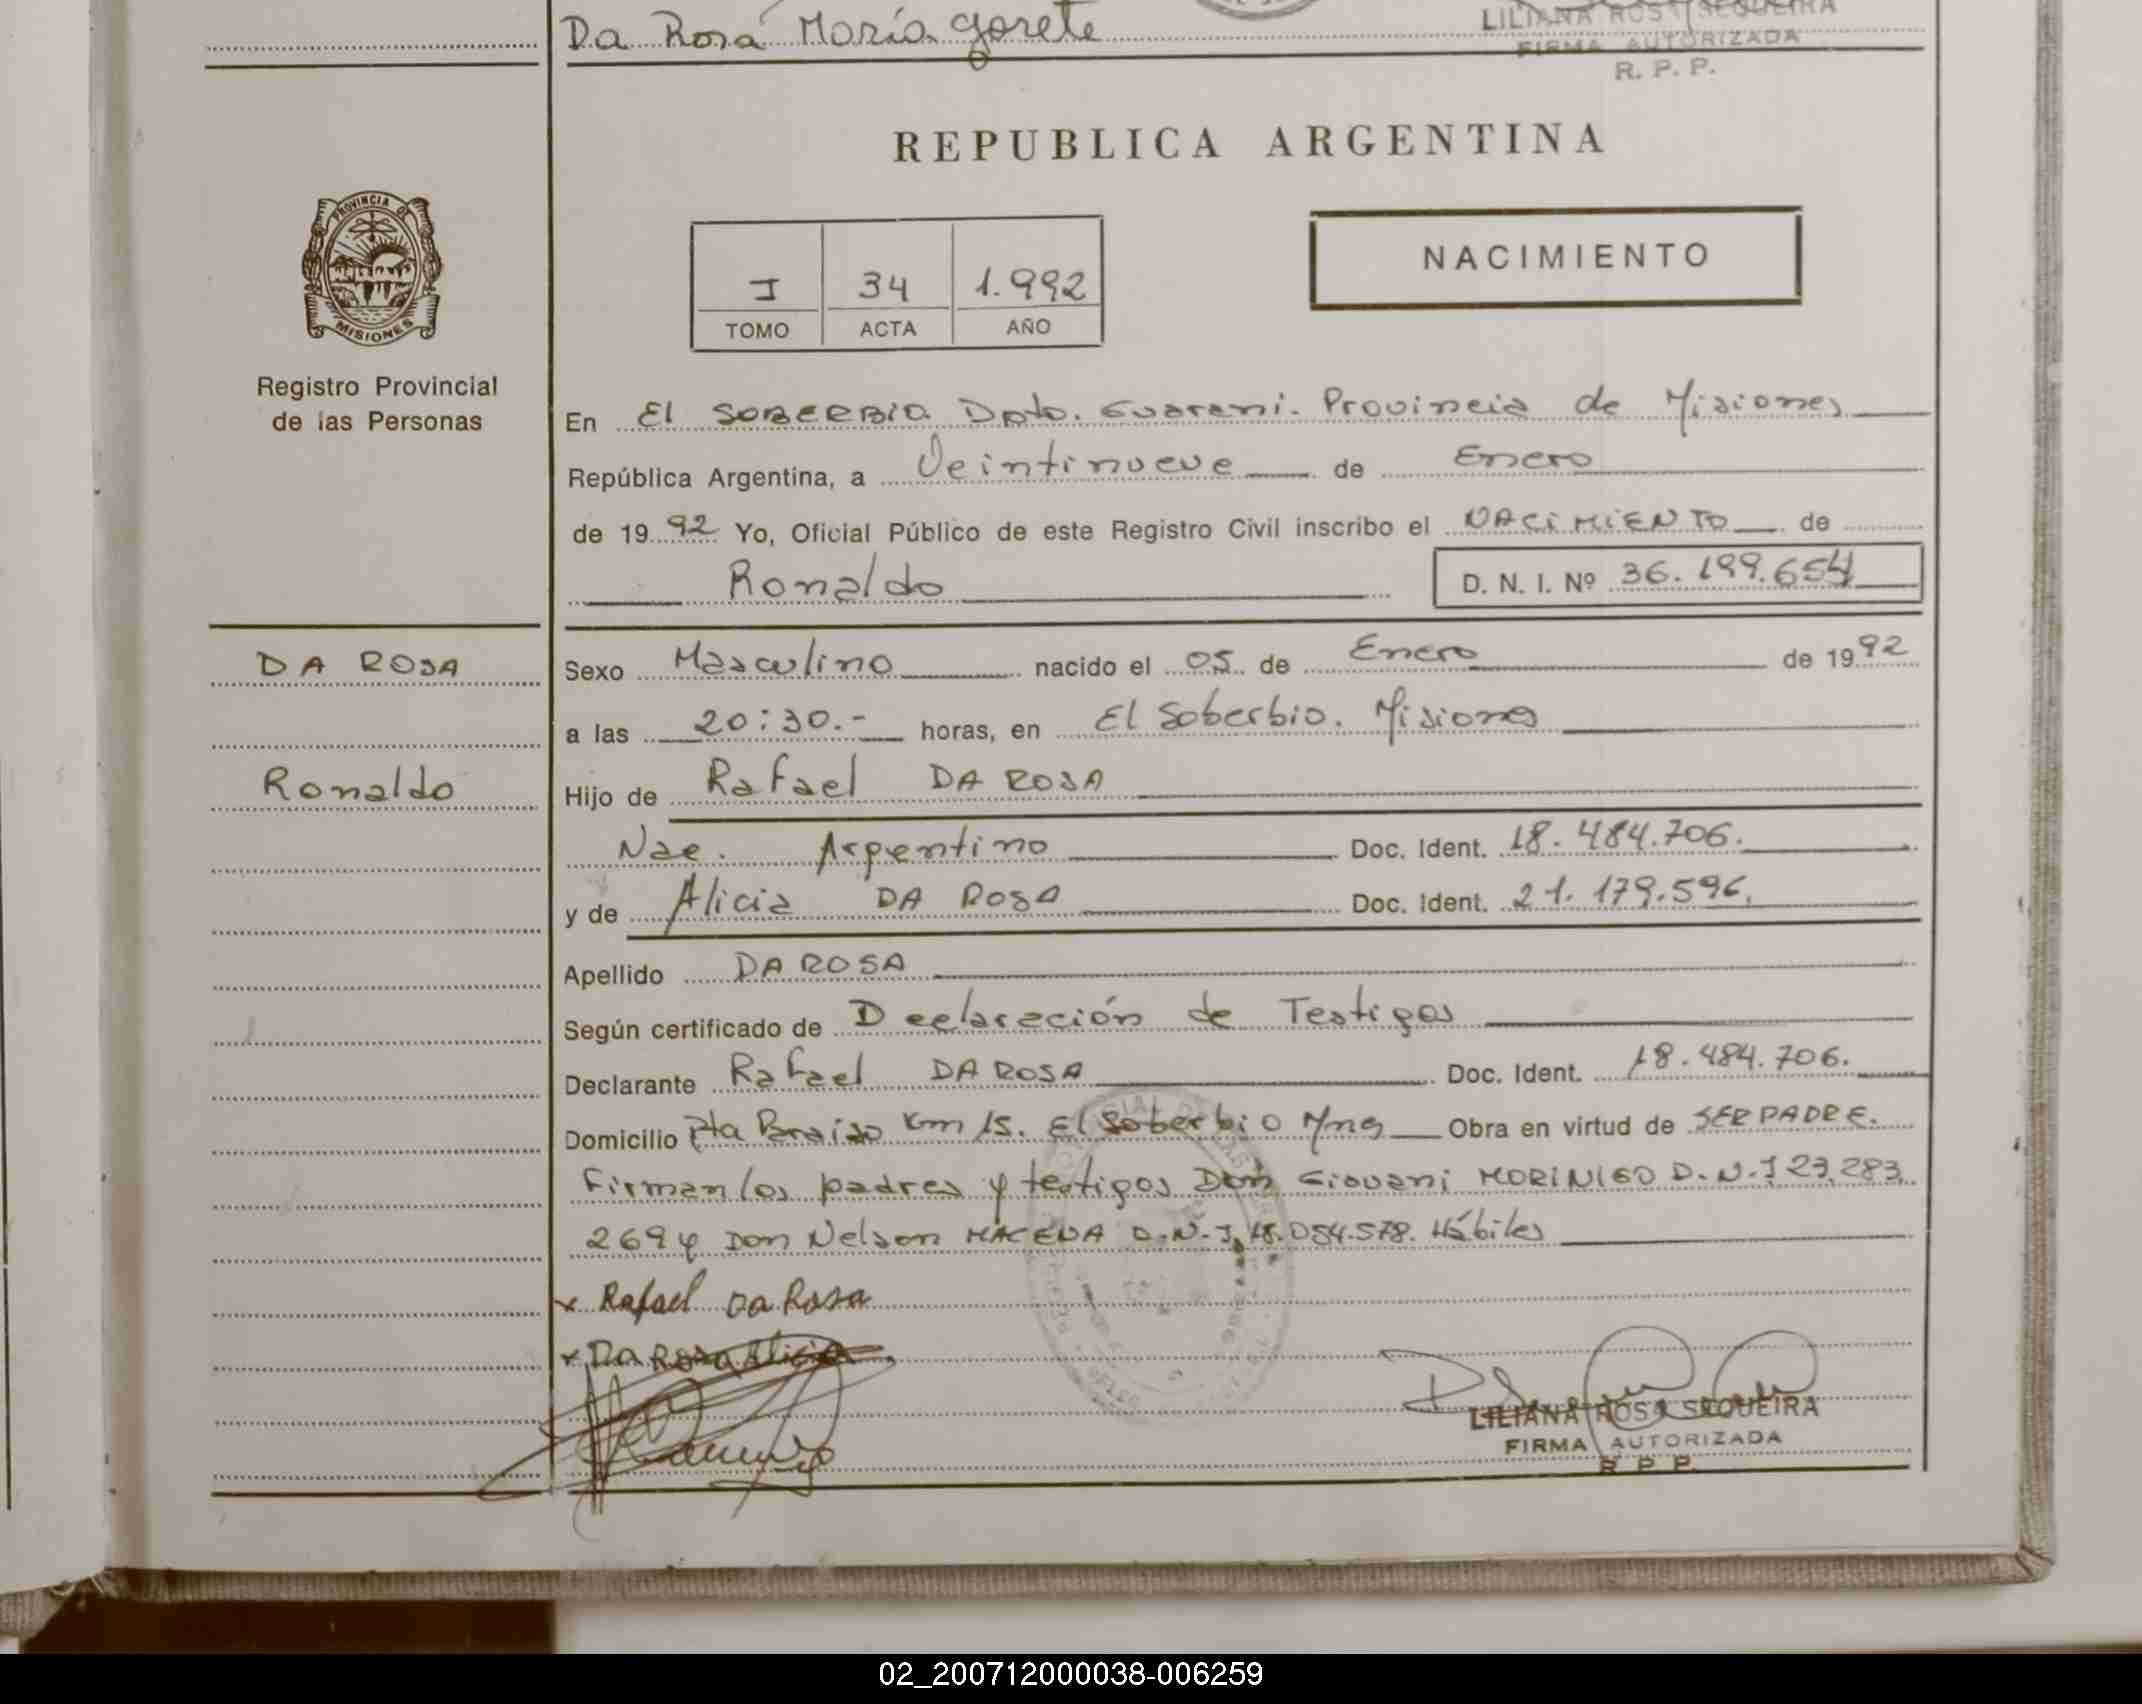 Da Rosa María gorete
LILIANA ROSA SEQUEIRA
FIRMA AUTORIZADA
R. P. P.
REPUBLICA ARGENTINA
PROVINCIA DE
MISIONES
Registro Provincial
de las Personas
I 34 1.992
TOMO ACTA AÑO
NACIMIENTO
En El SOBERBIO. Dpto. Guarani. Provincia de Misiones
República Argentina, a Veintinueve de Enero
de 19 92 Yo, Oficial Público de este Registro Civil inscribo el NACIMIENTO de
Ronaldo D. N. I. Nº 36.199.654
DA ROSA
Ronaldo
Sexo Masculino nacido el 05 de Enero de 19 92
a las 20:30.- horas, en El Soberbio. Misiones
Hijo de Rafael DA ROSA
Nac. Argentino Doc. Ident. 18.484.706.
y de Alicia DA ROSA Doc. Ident. 21.179.596.
Apellido DA ROSA
Según certificado de Declaración de Testigos
Declarante Rafael DA ROSA Doc. Ident. 18.484.706.
Domicilio Km 15. El Soberbio Mnes Obra en virtud de SER PADRE.
Firman los padres y testigos Don Giovani MORINIGO D.N.I 23.283.
269 y Don Nelson MACENA D.N.I. 18.054.578. Hábiles
x Rafael Da Rosa
x Da Rosa Alicia
LILIANA ROSA SEQUEIRA
FIRMA AUTORIZADA
R. P. P.
02_200712000038-006259